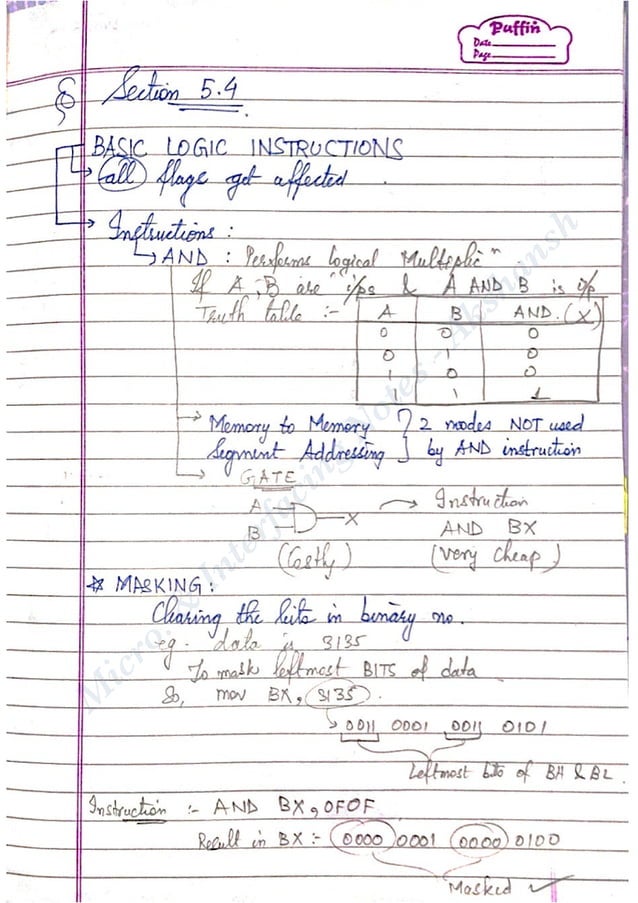 Puffin
Date
Page
§ Section 5.4
BASIC LOGIC INSTRUCTIONS
all flags get affected.
Instructions :
AND : Performs logical Multiplicⁿ
If A, B are i/ps & A AND B is i/p
Truth table :- A B AND. (X)
0 0 0
0 1 0
1 0 0
1 1 1
Memory to Memory } 2 modes NOT used
Segment Addressing } by AND instruction
GATE
A B X → Instruction
AND BX
(Costly) (very cheap)
* MASKING :
Clearing the bits in binary no.
eg. data is 3135
To mask leftmost BITS of data
So, mov BX, 3135.
0011 0001 0011 0101
Leftmost bits of BH & BL.
Instruction :- AND BX, 0F0F
Result in BX :- 0000 0001 0000 0100
Masked ✓
Micro. & Interfacing Notes - Akshansh